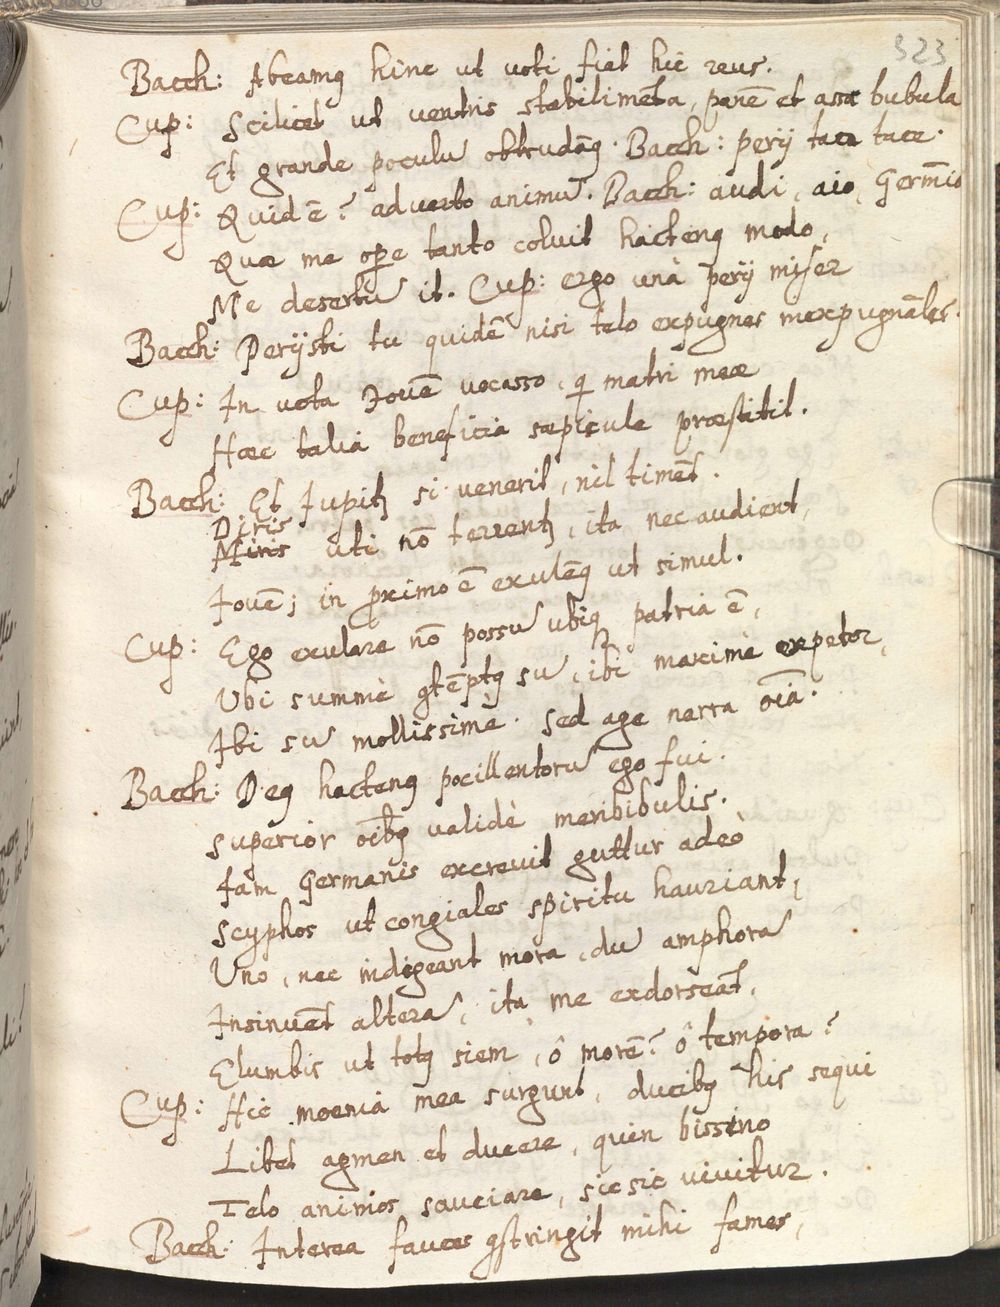 323
Bacch: Abeamq hinc ut voti fiat hic reus.
Cup: Scilicet ut ventris stabilimēta, panē et assa bubula
Et grande poculū obtrudāq. Bacch: perij tace tace.
Cup: Quid ē? adverto animū. Bacch: audi, aio, Germāia
Quæ me oꝑe tanto coluit hactenq modo,
Me desertū it. Cup: ergo unà perij miser
Bacch: Perijsti tu quidē nisi telo expugnes inexpugnāles.
Cup: In vota Iovē vocasso, q matri meæ
Hæc talia beneficia sæpicule præstitit.
Bacch: Et Iupitꝫ si venerit, nil timēt.
Diris
Minis uti nō terrentꝫ, ita nec audient,
Iovē; in proximo ē exulēq ut simul.
Cup: Ego exulare nō possū ubiq patria ē,
Ubi summè ꝯtēptq sū, ibi maximè expetor,
Ibi sū mollissimè. Sed age narra oīa.
Bacch: Deq hactenq pocillentorū ego fui.
Superior oībq validè meribibulis.
Iam Germanis excrevit guttur adeò
Scyphos ut congiales spiritu hauriant,
Uno, nec indigeant mora, dū amphorā
Insinuēt alterā, ita me exdorsēāt,
Elumbis ut totq siem, ô morē? ô tempora?
Cup: Hic moenia mea surgunt, ducibq his sequi
Libet agmen et ducere, quin bissino
Telo animos sauciare, sic sic vivitur.
Bacch: Interea fauces ꝯstringit mihi fames,